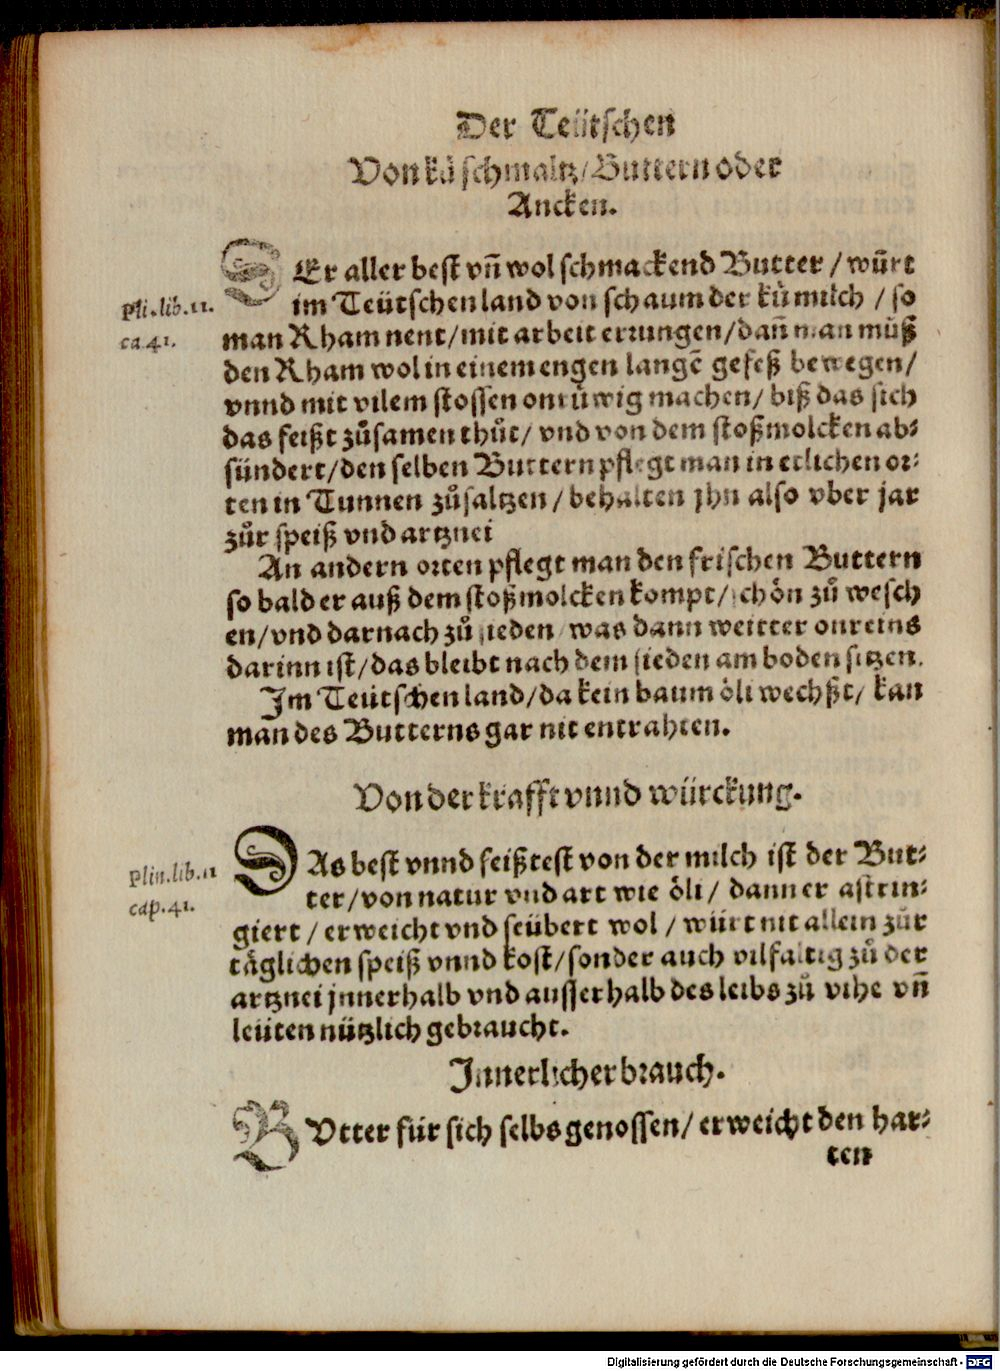 Der Teütschen
Von kůschmaltz / Buttern oder
Ancken.
DEr aller best vñ wol schmackend Butter / würt
Pli.lib.11.
ca 41.
im Teütschen land von schaum der kůmilch / so
man Rham nent / mit arbeit errungen / dañ man můß
den Rham wol in einem engen langē gefeß bewegen /
vnnd mit vilem stossen onrüwig machen / biß das sich
das feißt zůsamen thůt / vnd von dem stoßmolcken ab⸗
sündert / den selben Buttern pflegt man in etlichen or⸗
ten in Tunnen zůsaltzen / behalten jhn also vber jar
zůr speiß vnd artznei
An andern orten pflegt man den frischen Buttern
so bald er auß dem stoßmolcken kompt / schön zů wesch
en / vnd darnach zů sieden / was dann weitter onreins
darinn ist / das bleibt nach dem sieden am boden sitzen.
Im Teütschen land / da kein baum öli wechßt / kan
man des Butterns gar nit entrahten.
Von der krafft vnnd würckung.
Plin.lib.11
cap.41.
DAs best vnnd feißtest von der milch ist der But⸗
ter / von natur vnd art wie öli / dann er astrin⸗
giert / erweicht vnd seübert wol / würt nit allein zůr
täglichen speiß vnnd kost / sonder auch vilfaltig zů der
artznei jnnerhalb vnd ausserhalb des leibs zů vihe vñ
leüten nützlich gebraucht.
Innerlicher brauch.
BVtter für sich selbs genossen / erweicht den har⸗
ten
Digitalisierung gefördert durch die Deutsche Forschungsgemeinschaft - DFG